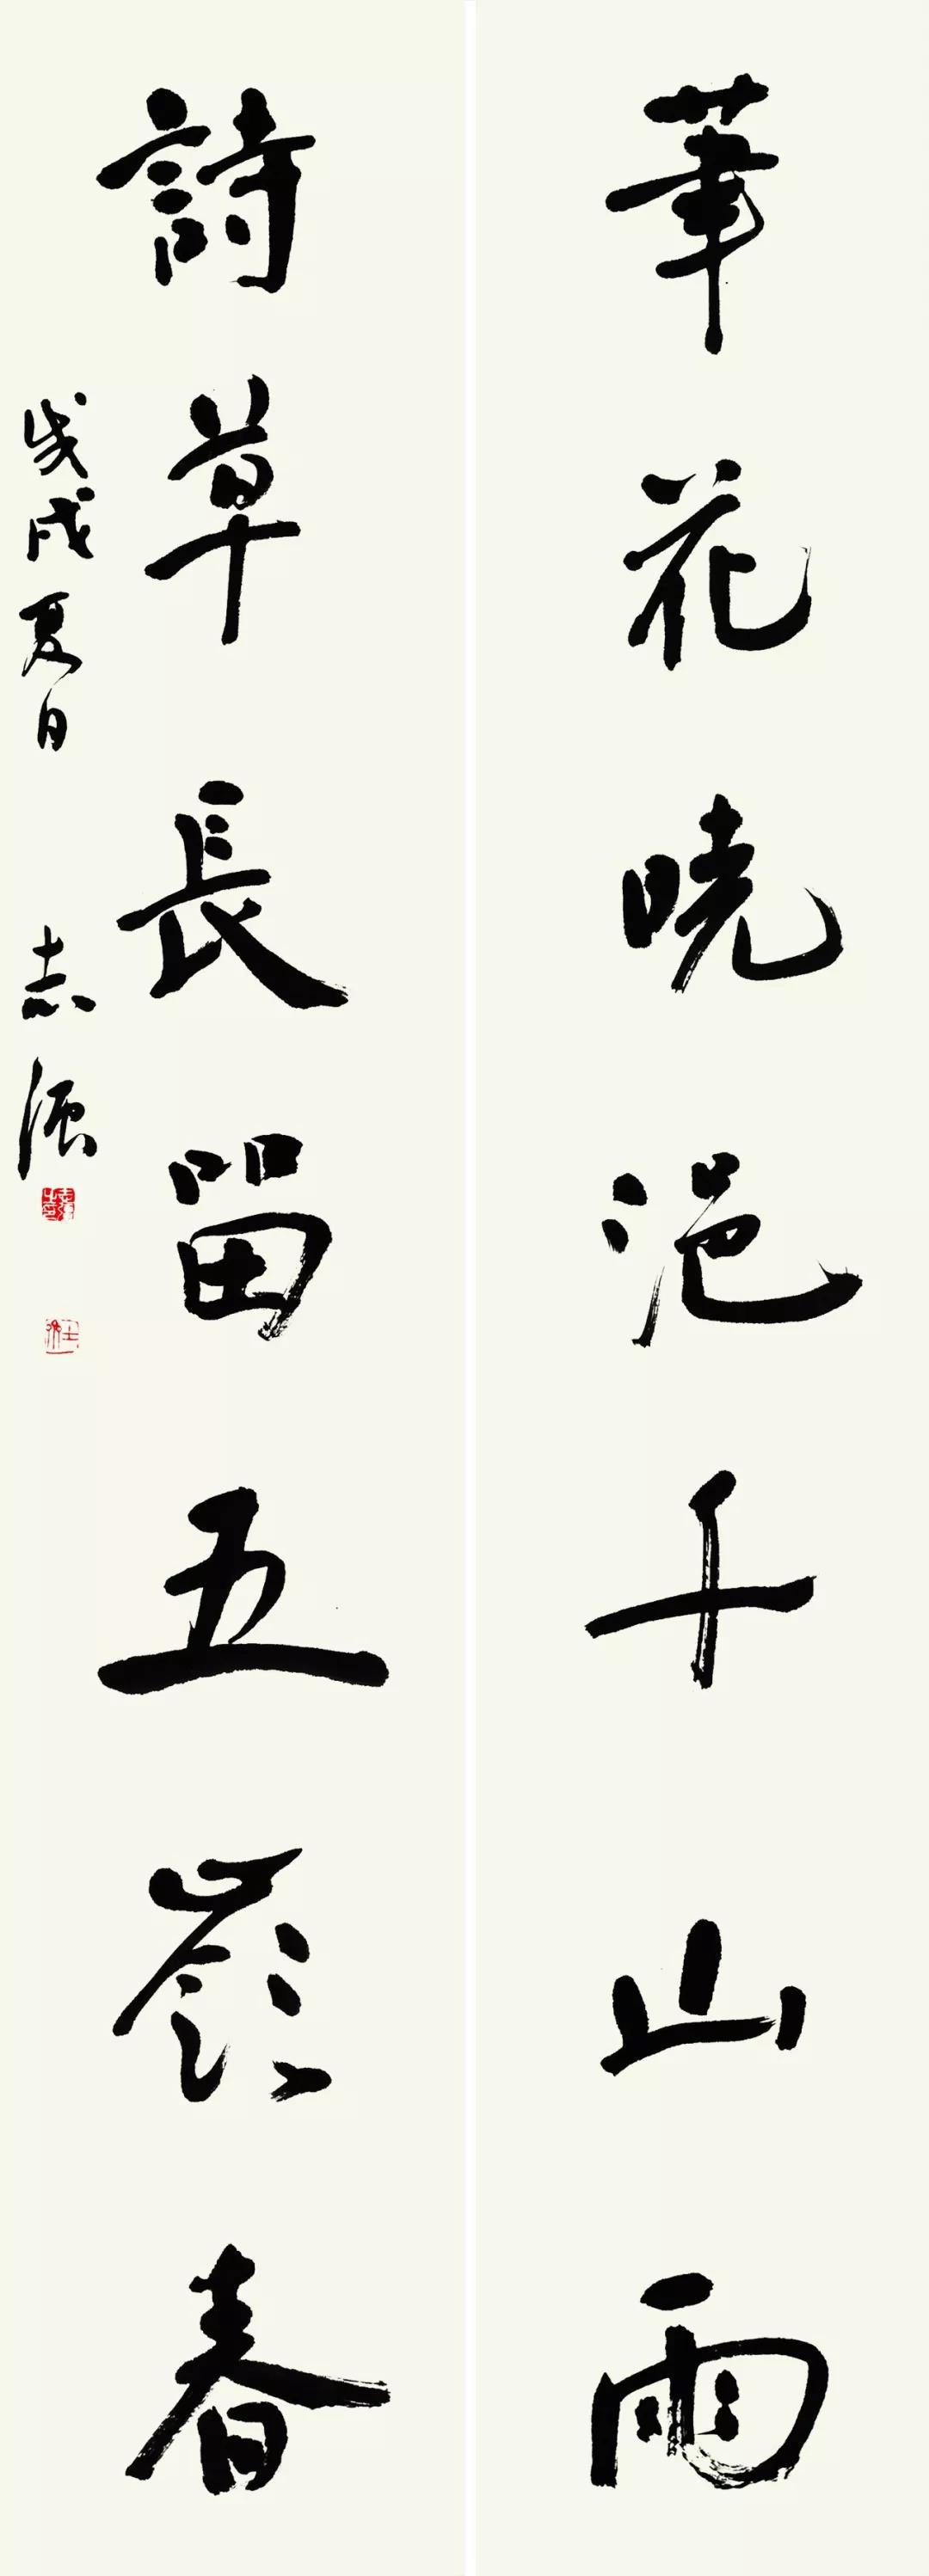 筆花曉浥千山雨
詩草長留五嶺春
戊戌夏日 志源